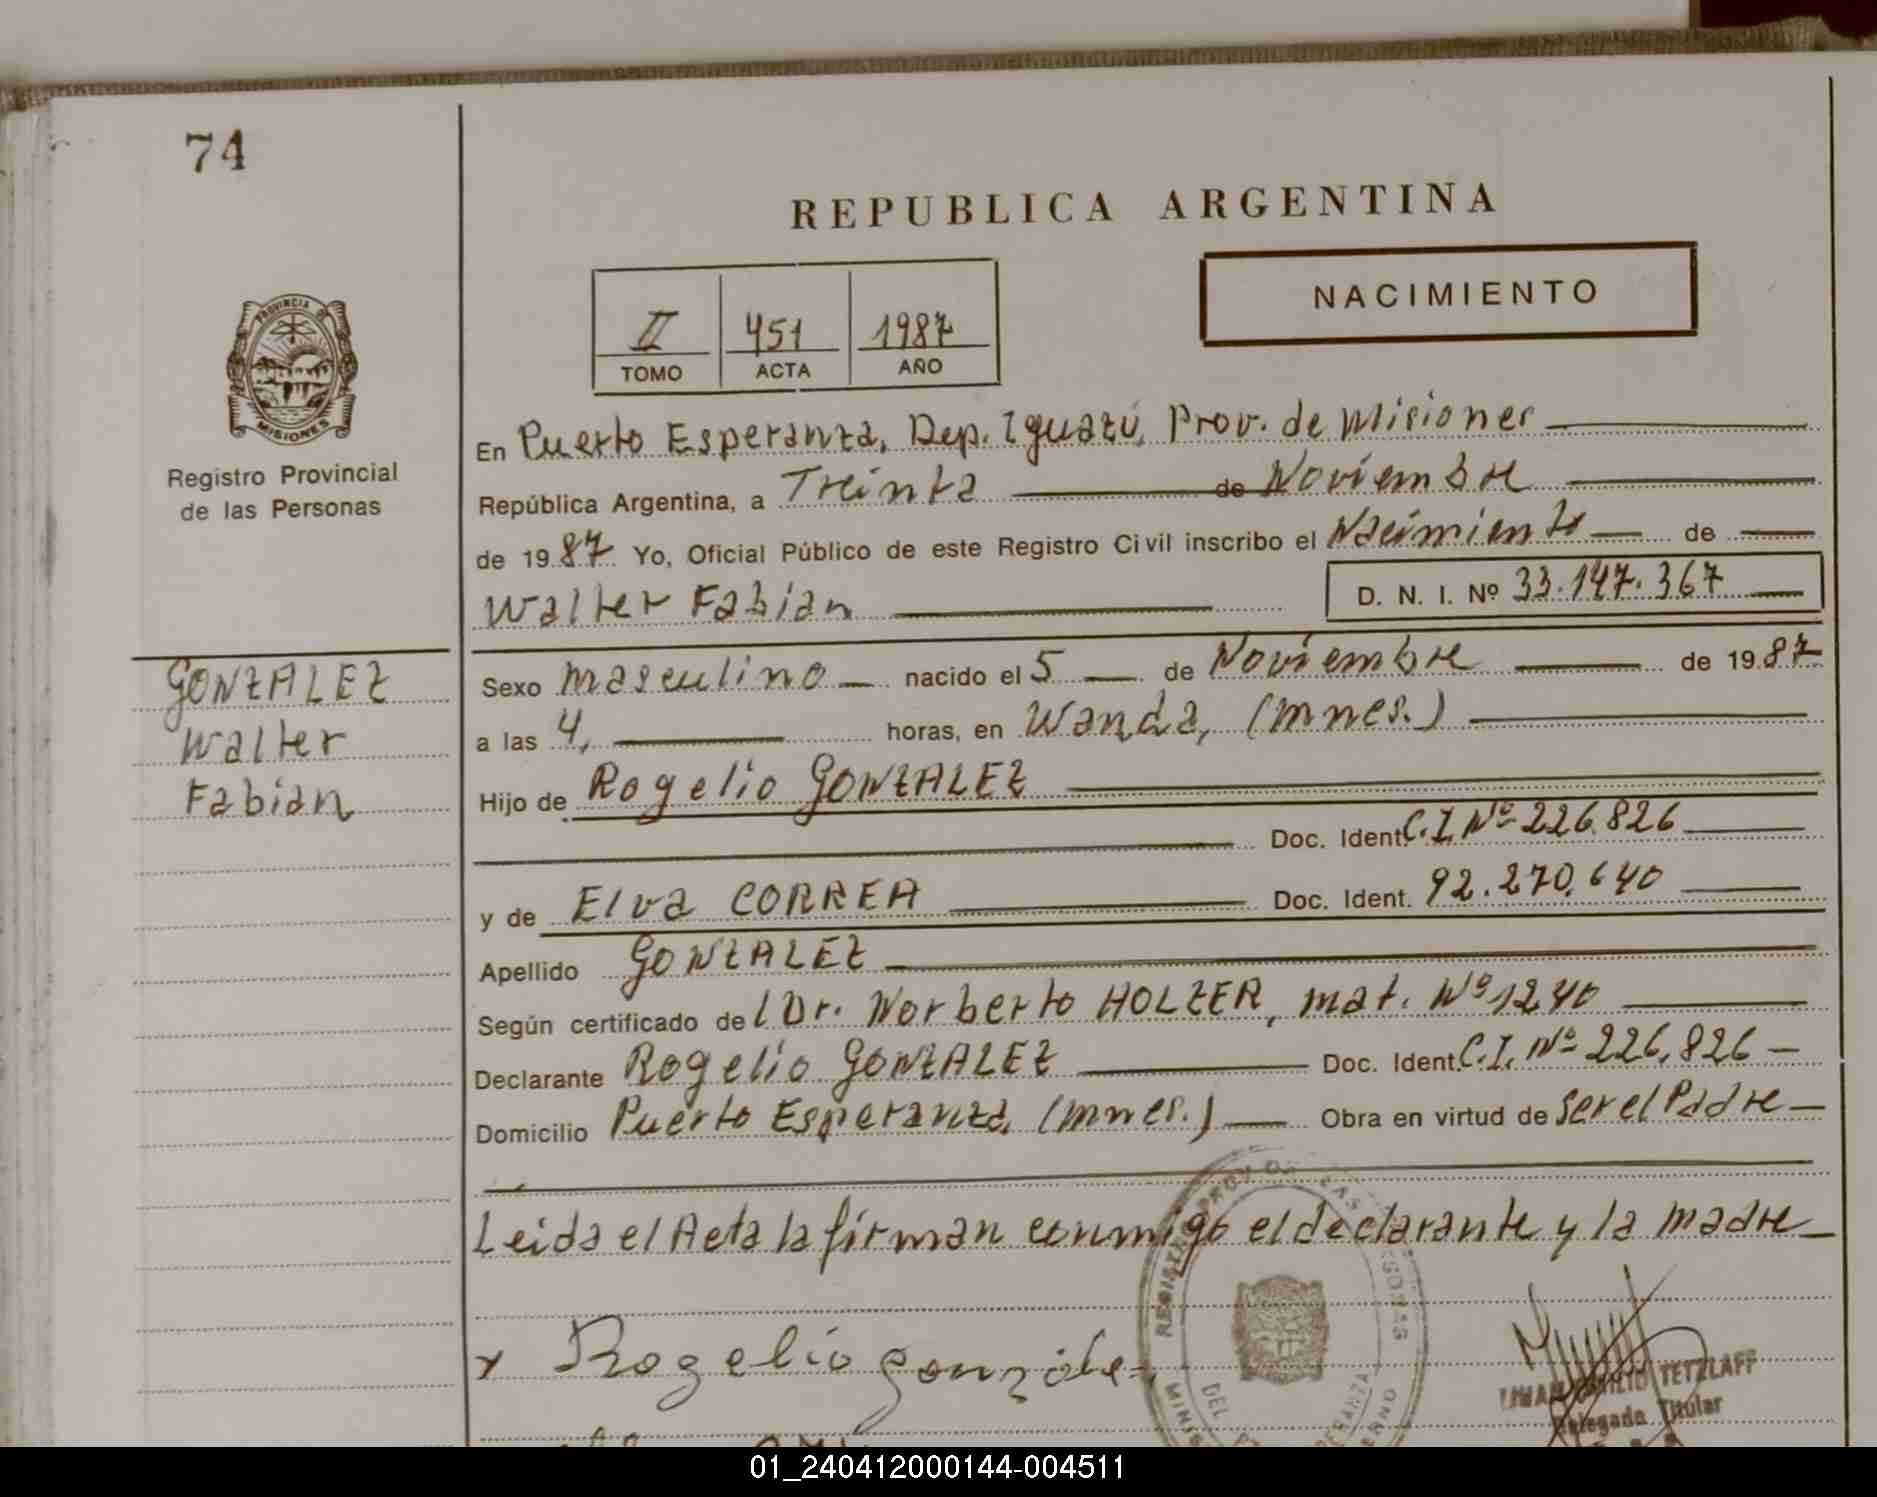 74
REPUBLICA ARGENTINA
NACIMIENTO
II 451 1987
TOMO ACTA AÑO
PROVINCIA DE
MISIONES
Registro Provincial
de las Personas
En Puerto Esperanza, Dep. Iguazú, Prov. de Misiones
República Argentina, a Treinta de Noviembre
de 1987 Yo, Oficial Público de este Registro Civil inscribo el Nacimiento de
Walter Fabian D. N. I. Nº 33.147.367
GONZALEZ
Walter
Fabian
Sexo masculino nacido el 5 de Noviembre de 1987
a las 4, horas, en Wanda, (Mnes.)
Hijo de Rogelio GONZALEZ
Doc. Ident. C.I. Nº 226.826
y de Elva CORREA Doc. Ident. 92.270.640
Apellido GONZALEZ
Según certificado del Dr. Norberto HOLZER, mat. Nº 1240
Declarante Rogelio GONZALEZ Doc. Ident. C.I. Nº 226.826
Domicilio Puerto Esperanza, (Mnes.) Obra en virtud de ser el Padre
Leida el Acta la firman conmigo el declarante y la madre
x Rogelio Gonzalez
REGISTRO PROV. DE LAS PERSONAS
TETZLAFF
Delegado Titular
01_240412000144-004511